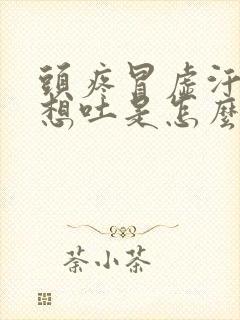 頭疼冒虛汗
想吐是怎麼
荼小茶